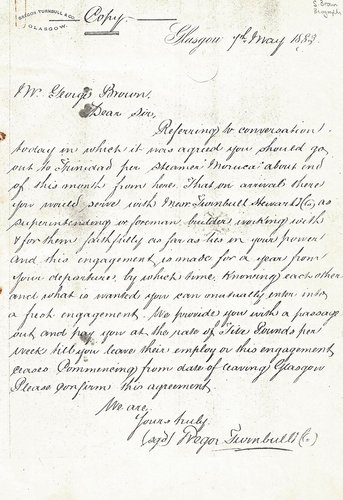 GREGOR TURNBULL & CO.
GLASGOW.
Copy.
S. Brown
Biography
Glasgow 7th May 1883
Mr. George Brown.
Dear Sir,
Referring to conversation
today in which it was agreed you should go
out to Trinidad per steamer "Moruca" about end
of this month from here. That on arrival there
you would serve with Messrs Turnbull Stewart & Co as
superintending or foreman builder working with
& for them faithfully as far as lies in your power
and this engagement is made for a year from
your departure by which time, knowing each other
and what is wanted you can mutually enter into
a fresh engagement. We provide you with a passage
out and pay you at the rate of Five Pounds per
week till you leave their employ or this engagement
ceases Commencing from date of leaving Glasgow
Please confirm this agreement.
We are,
Yours truly,
(sgd) Gregor Turnbull & Co